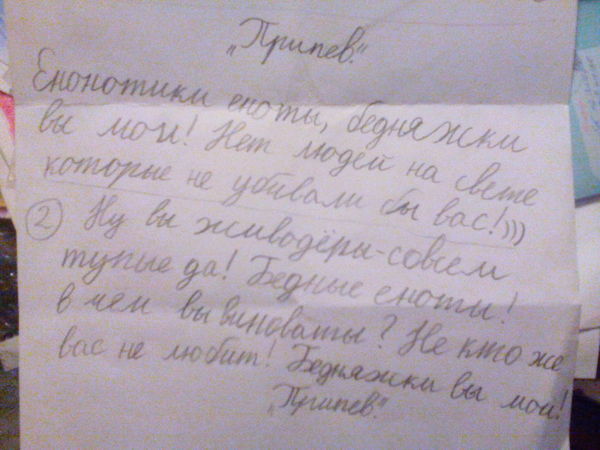 „Припев."
Енонотики еноты, бедняжки
вы мои! Нет людей на свете
которые не убивали бы вас!)))
2 Ну вы живодёры-совсем
тупые да! Бедные еноты!
в чем вы виноваты? Не кто же
вас не любит! Бедняжки вы мои!
„Припев."